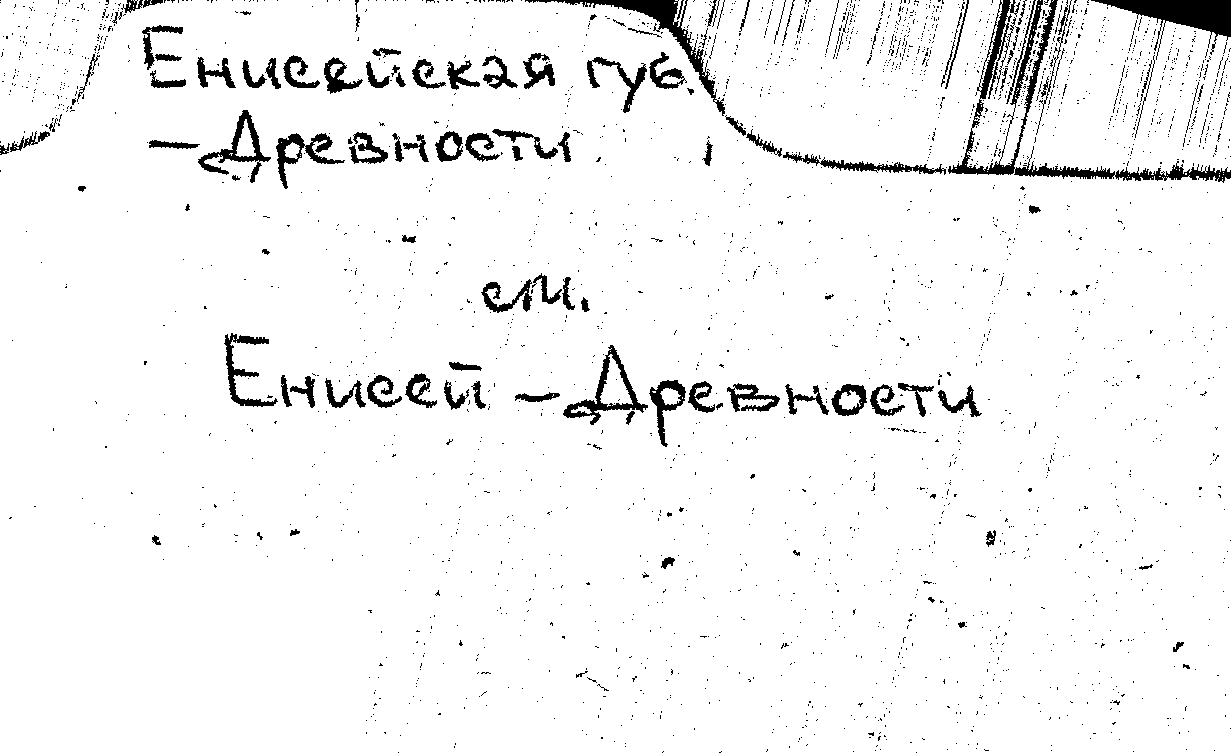 Енисейская губ.
— Древности
см.
Енисей — Древности